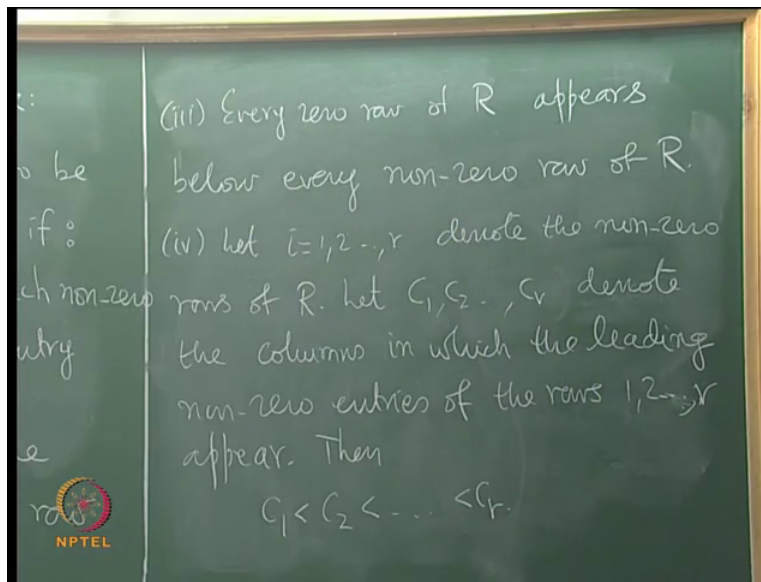 :
o be
if :
ch non-zero
ntry
e
row
(iii) Every zero row of R appears
below every non-zero row of R.
(iv) Let i=1,2..,r denote the non-zero
rows of R. Let C₁,C₂..,Cᵣ denote
the columns in which the leading
non-zero entries of the rows 1,2...,r
appear. Then
C₁ < C₂ < .... < Cᵣ.
NPTEL